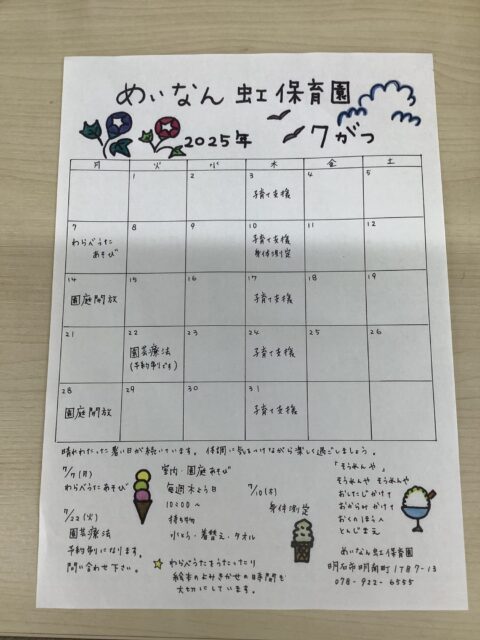 めぃなん虹保育園
2025年 7がつ
月 火 水 木 金 土
1 2 3 4 5
子育て支援
7 8 9 10 11 12
わらべうた
あそび
子育て支援
身体測定
14 15 16 17 18 19
園庭開放
子育て支援
21 22 23 24 25 26
園芸療法
(予約制です)
子育て支援
28 29 30 31
園庭開放
子育て支援
晴れわたった暑い日が続いています。体調に気をつけながら楽しく過ごしましょう。
7/7(月)
わらべうたあそび
7/22(火)
園芸療法
予約制になります。
問い合わせ下さい。
室内・園庭あそび
毎週木よう日
10:00~
持ち物
水とう・着替え・タオル
☆わらべうたをうたったり
絵本のよみきかせの時間も
大切にしています。
7/10(木)
身体測定
「そうめんや」
そうめんや そうめんや
おしたじかけて
おからみかけて
おくのほうへ
とんじまえ
めいなん虹保育園
明石市明南町1丁目7-13
078-922-6555